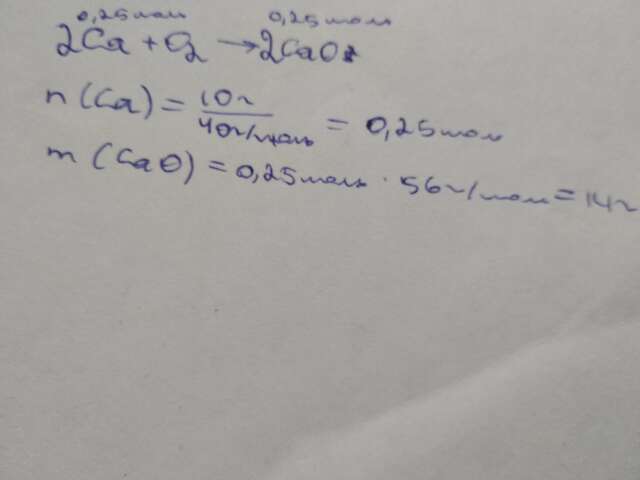 0,25моль 0,25моль
2Ca + O2 → 2CaO
n (Ca) = 10г / 40г/моль = 0,25моль
m (CaO) = 0,25моль · 56г/моль = 14г